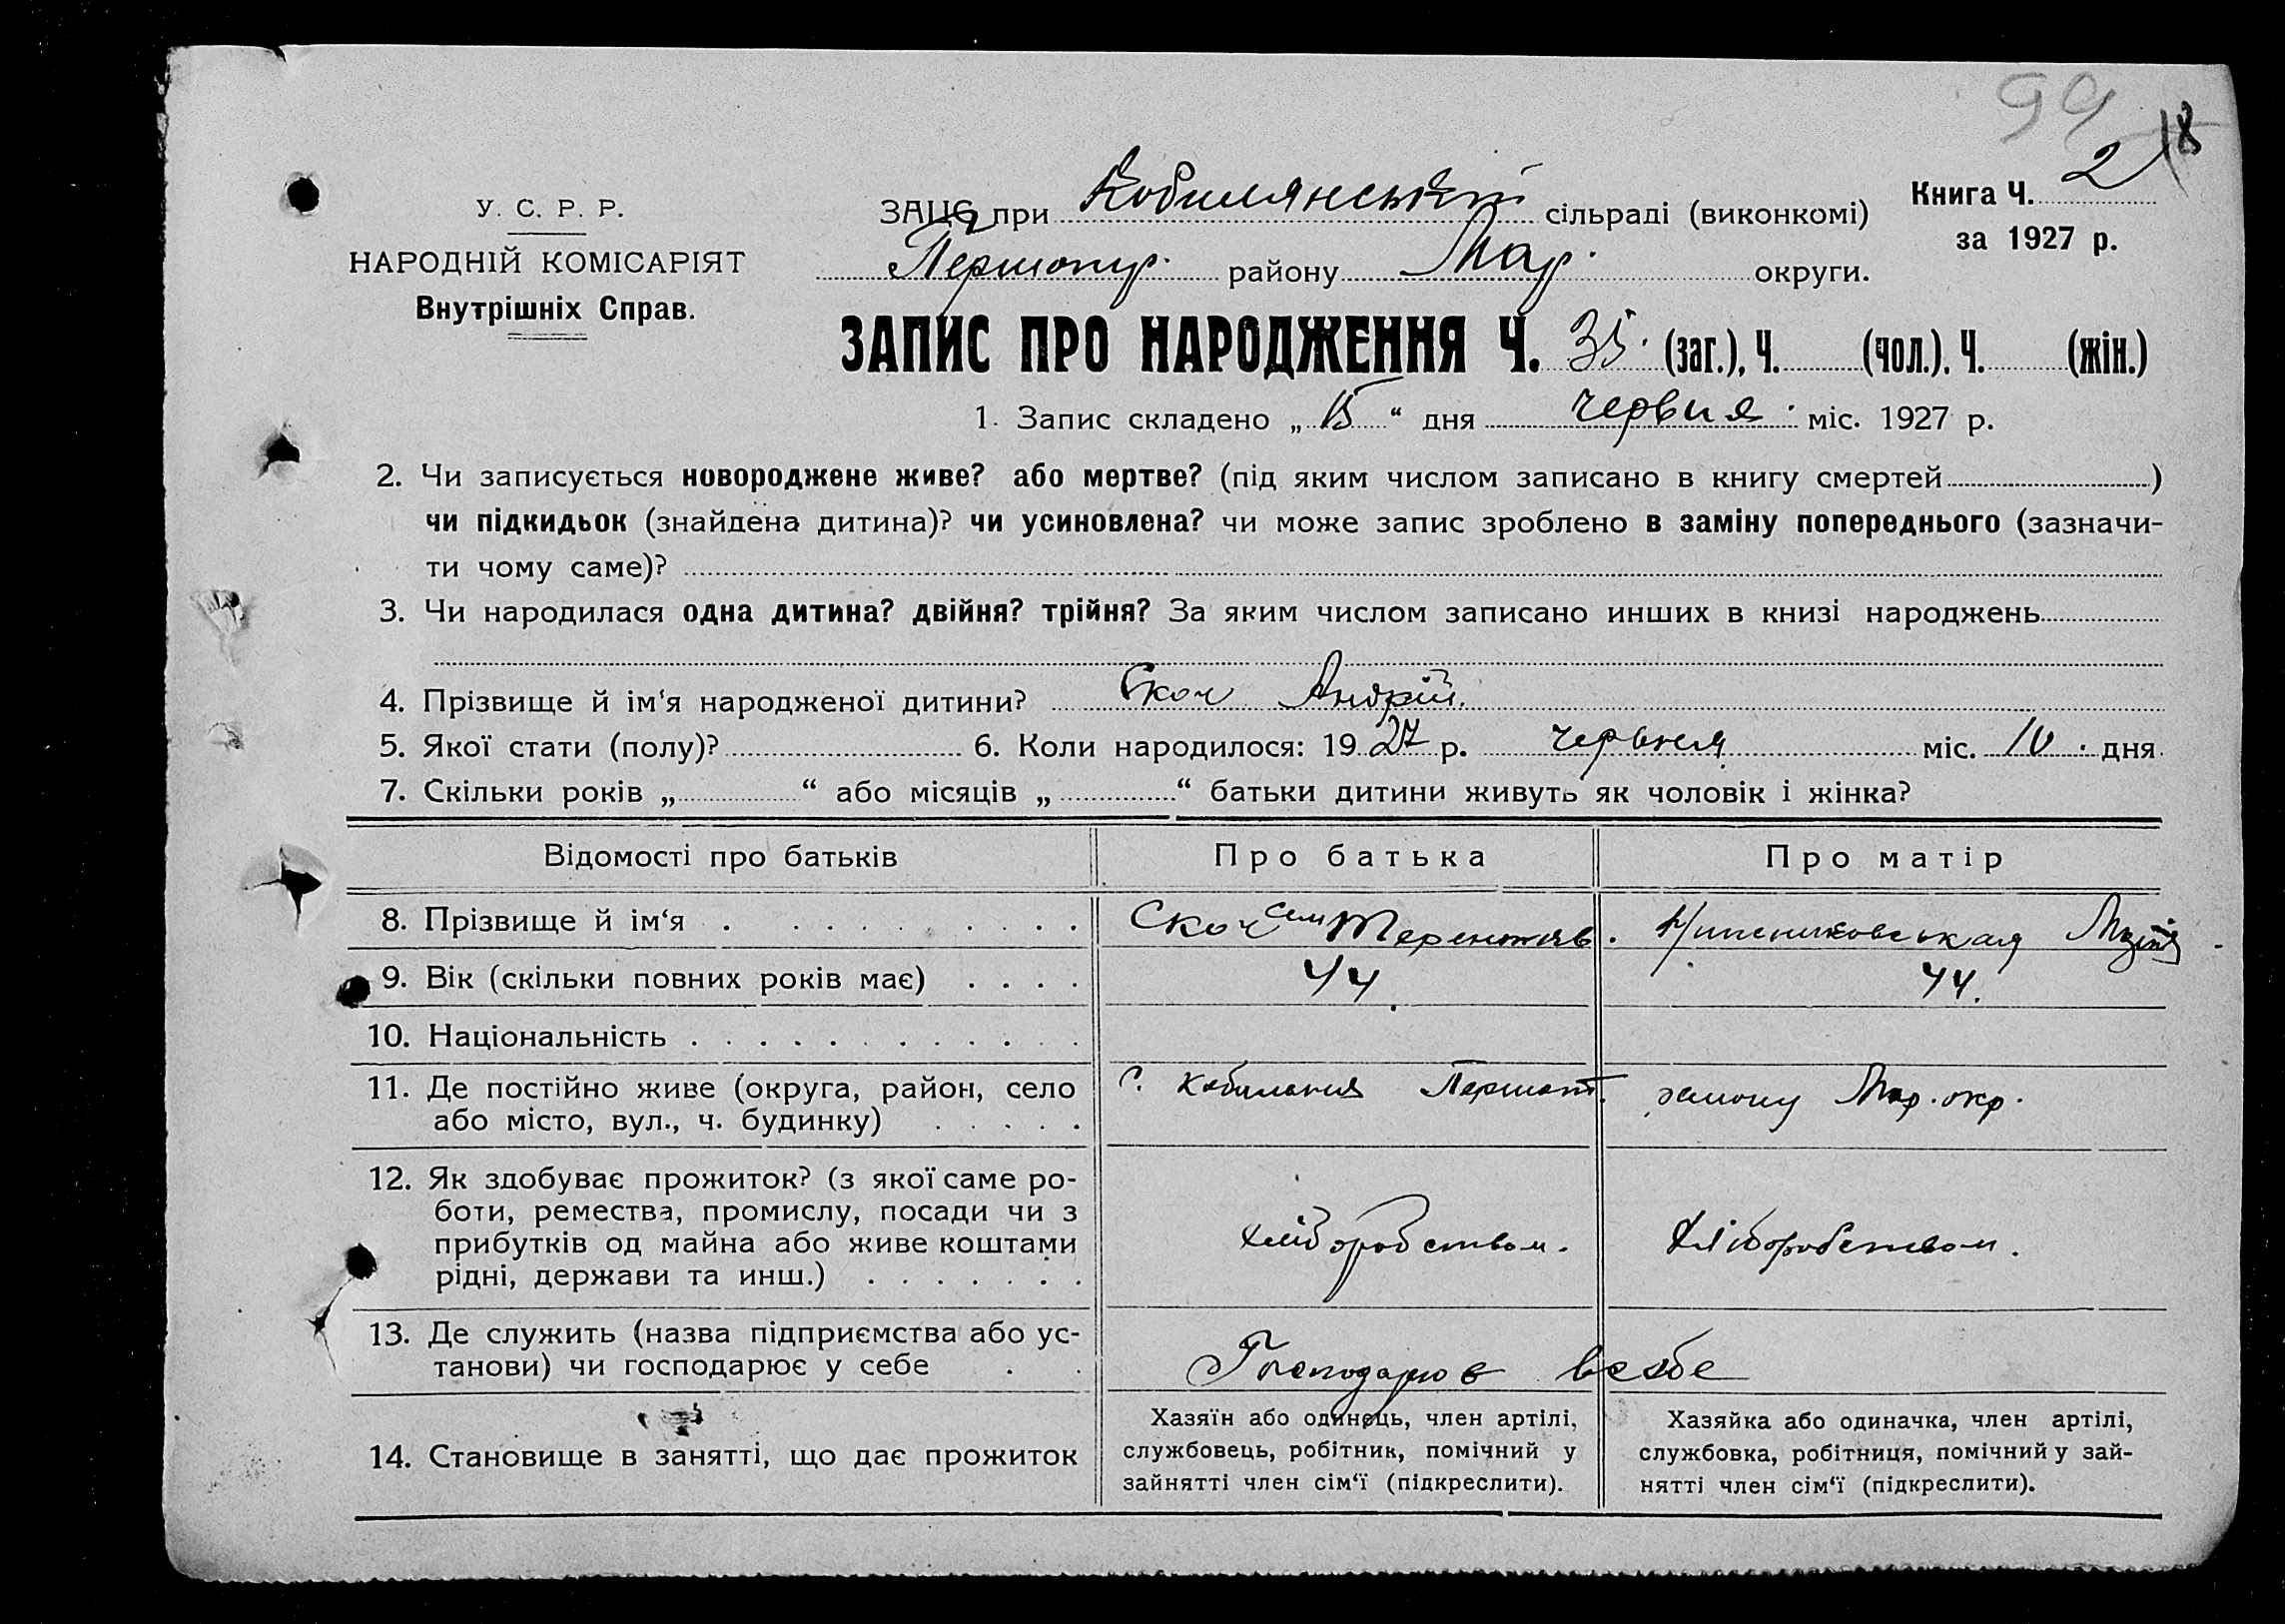 99
18
У. С. Р. Р.
НАРОДНІЙ КОМІСАРІЯТ
Внутрішніх Справ.
ЗАЦС при Кобилянській сільраді (виконкомі)
Книга Ч. 2
за 1927 р.
району Мар. округи.
ЗАПИС ПРО НАРОДЖЕННЯ Ч. 35. (заг.), Ч. (чол.). Ч. (жін.)
1. Запис складено „ 15 “ дня червня. міс. 1927 р.
2. Чи записується новороджене живе? або мертве? (під яким числом записано в книгу смертей )
чи підкидьок (знайдена дитина)? чи усиновлена? чи може запис зроблено в заміну попереднього (зазначи-
ти чому саме)?
3. Чи народилася одна дитина? двійня? трійня? За яким числом записано инших в книзі народжень
4. Прізвище й ім‘я народженої дитини? Скоч Андрій.
5. Якої стати (полу)? 6. Коли народилося: 19 27 р. червня міс. 10. дня
7. Скільки років „ “ або місяців „ “ батьки дитини живуть як чоловік і жінка?
Відомості про батьків Про батька Про матір
8. Прізвище й ім‘я Скоч
9. Вік (скільки повних років має) 44. 44.
10. Національність
11. Де постійно живе (округа, район, село с. Першот. району Мар. окр.
або місто, вул., ч. будинку)
12. Як здобуває прожиток? (з якої саме ро-
боти, ремества, промислу, посади чи з
прибутків од майна або живе коштами хліборобством. Хліборобством.
рідні, держави та инш.)
13. Де служить (назва підприємства або ус-
танови) чи господарює у себе Господарює в себе
14. Становище в занятті, що дає прожиток
Хазяїн або одинець, член артілі,
службовець, робітник, помічний у
зайнятті член сім‘ї (підкреслити).
Хазяйка або одиначка, член артілі,
службовка, робітниця, помічний у зай-
нятті член сім‘ї (підкреслити).